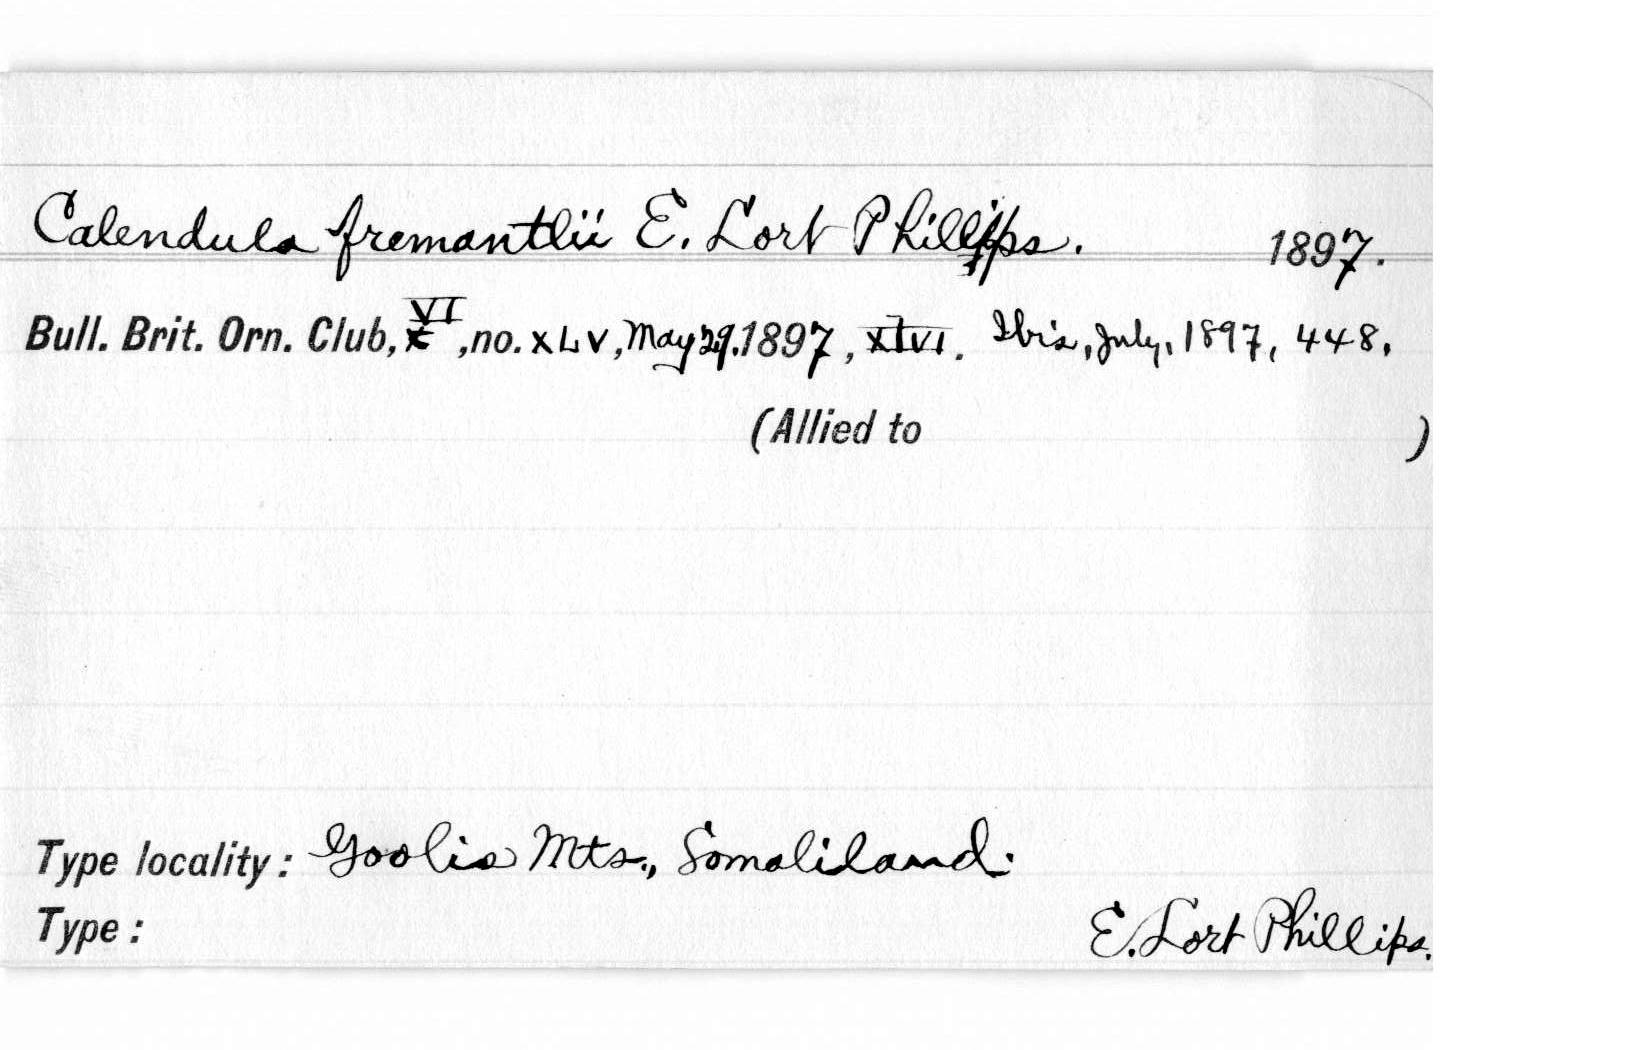 Calendula fremantlii E. Lort Phillips. 1897.
Bull. Brit. Orn. Club, VI, no. XLV, May 29. 1897, XLVI. Ibis, July, 1897, 448.
(Allied to )
Type locality: Goolis Mts., Somaliland.
Type: E. Lort Phillips.